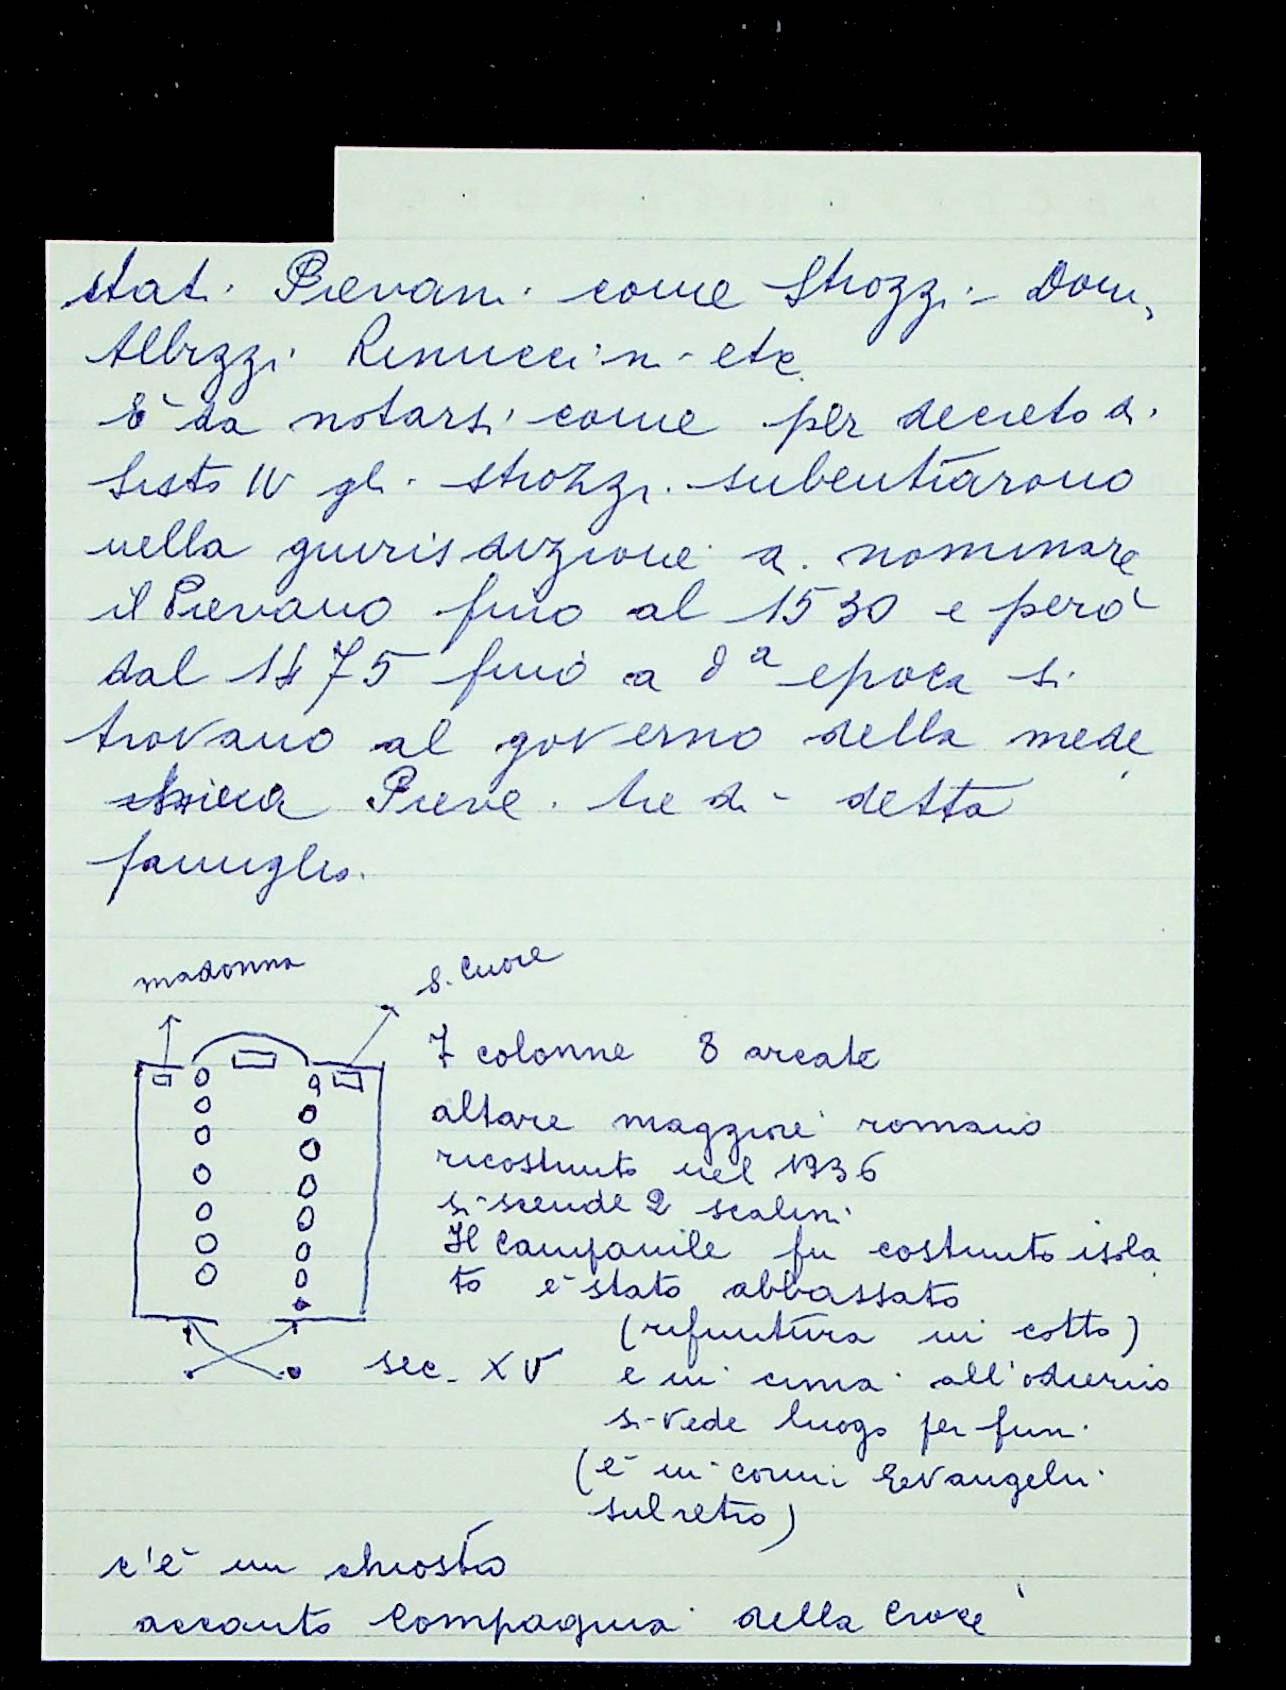 stati Pievani come Strozzi - Doni,
Albizzi Rinuccini - etc.
È da notarsi come per decreto di
Sisto IV gli Strozzi subentrarono
nella giurisdizione a nominare
il Pievano fino al 1530 e però
dal 1475 fino a da epoca si
trovano al governo della mede
sima Pieve tre di detta
famiglia.
madonna
S. Cuore
7 colonne 8 arcate
altare maggiore romano
ricostruito nel 1936
si scende 2 scalini
Il Campanile fu costruito isola
to è stato abbassato
(rifinitura in cotto)
sec. XV
e in cima all'odierno
si vede luogo per funi
(è in cornu Evangelii
sul retro)
c'è un chiostro
accanto Compagnia della Croce